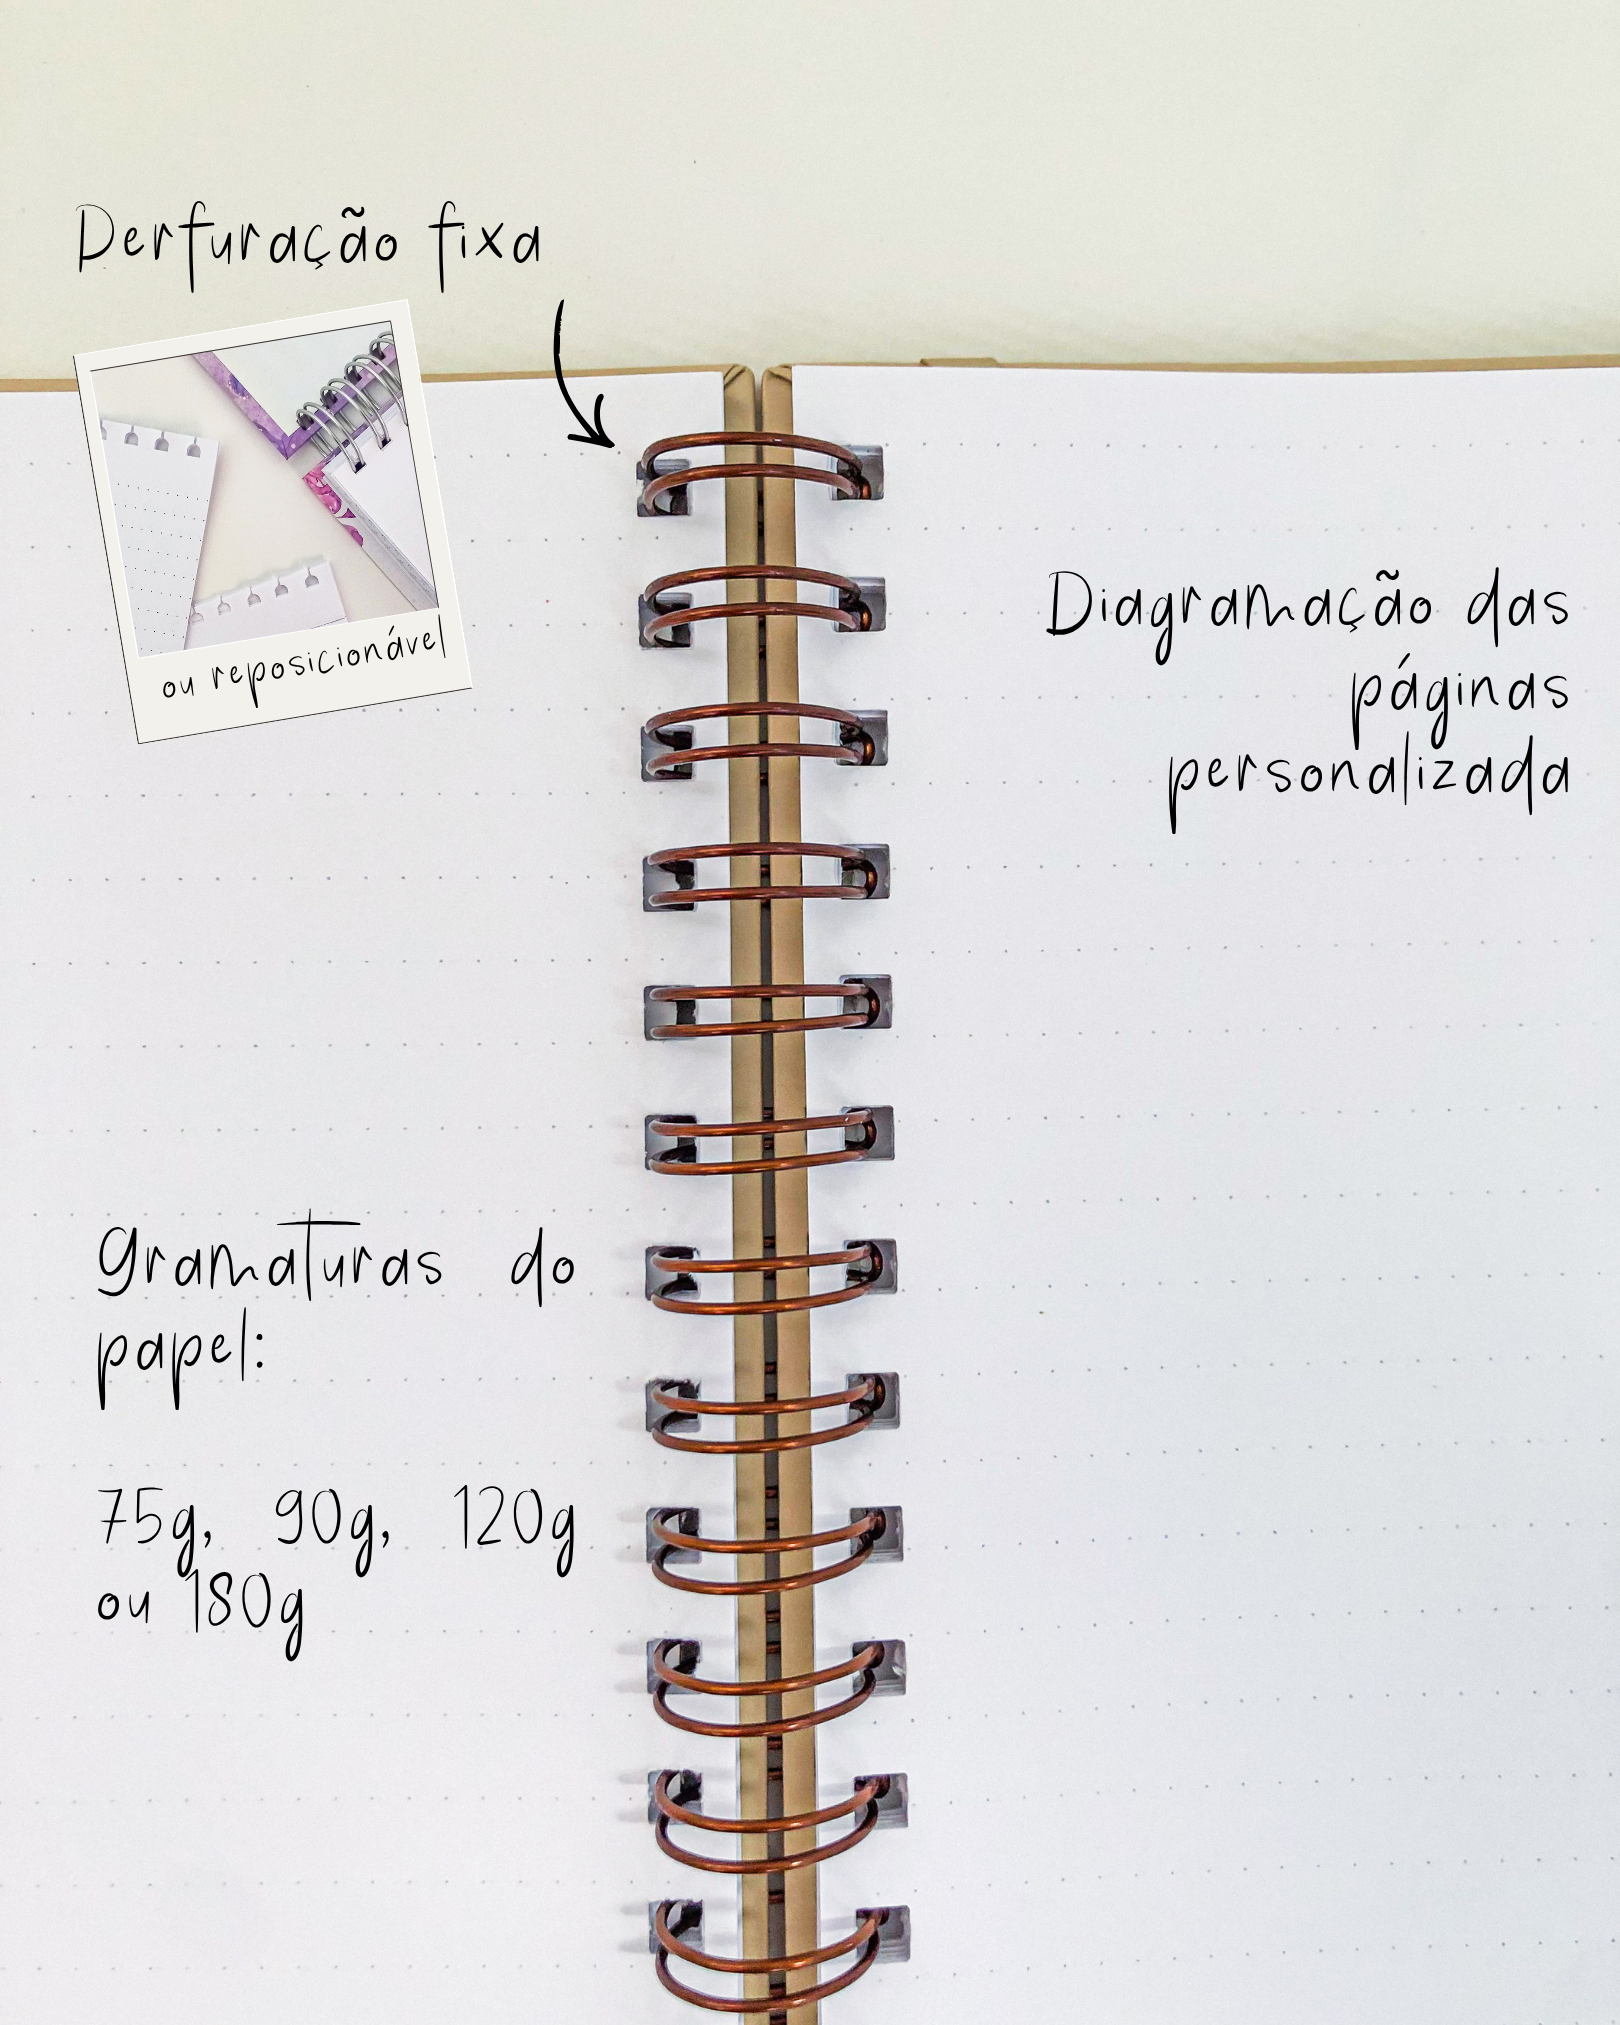 Derfuração fixa
ou reposicionável
Diagramação das
páginas
personalizada
Gramaturas do
papel:
75g, 90g, 120g
ou 180g